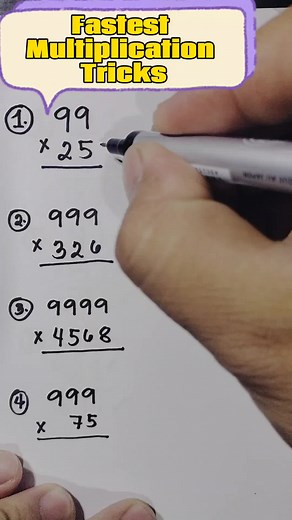 Fastest
Multiplication
Tricks
1. 99
x 25
2. 999
x 326
3. 9999
x 4568
4 999
x 75